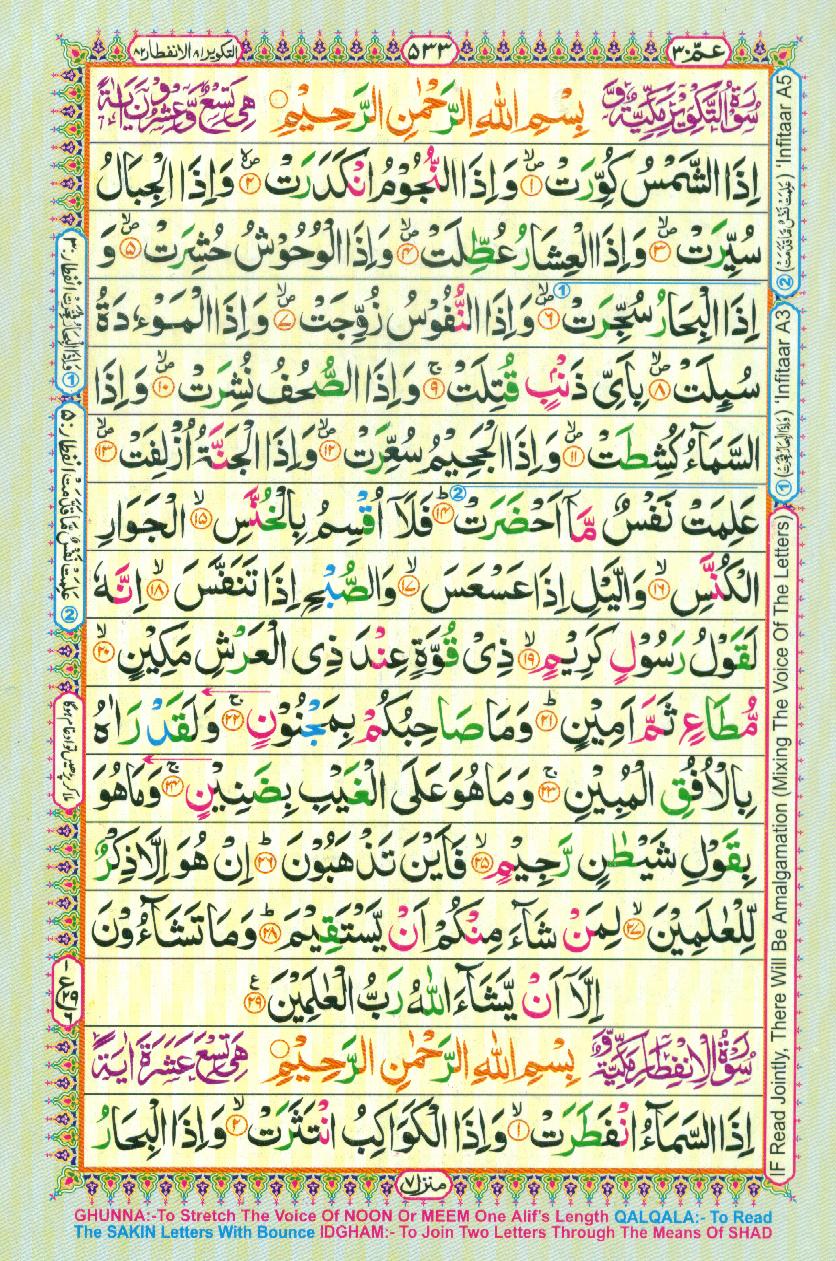 التكوير ٨١ الانفطار ٨٢
٥٣٣
عمّ ٣٠
سُوْرَةُ التَّكْوِيْرِ مَكِّيَّةٌ وَّ بِسْمِ اللّٰهِ الرَّحْمٰنِ الرَّحِيْمِ هِيَ تِسْعٌ وَّعِشْرُوْنَ اٰيَةً
اِذَا الشَّمْسُ كُوِّرَتْ ۙ۝١ وَاِذَا النُّجُوْمُ انْكَدَرَتْ ۙ۝٢ وَاِذَا الْجِبَالُ
سُيِّرَتْ ۙ۝٣ وَاِذَا الْعِشَارُ عُطِّلَتْ ۙ۝٤ وَاِذَا الْوُحُوْشُ حُشِرَتْ ۙ۝٥ وَ
اِذَا الْبِحَارُ سُجِّرَتْ ۙ۝٦ وَاِذَا النُّفُوْسُ زُوِّجَتْ ۙ۝٧ وَاِذَا الْمَوْءٗدَةُ
سُىِٕلَتْ ۙ۝٨ بِاَىِّ ذَنْۢبٍ قُتِلَتْ ۚ۝٩ وَاِذَا الصُّحُفُ نُشِرَتْ ۙ۝١٠ وَاِذَا
السَّمَآءُ كُشِطَتْ ۙ۝١١ وَاِذَا الْجَحِيْمُ سُعِّرَتْ ۙ۝١٢ وَاِذَا الْجَنَّةُ اُزْلِفَتْ ۙ۝١٣
عَلِمَتْ نَفْسٌ مَّاۤ اَحْضَرَتْ ؕ۝١٤ فَلَاۤ اُقْسِمُ بِالْخُنَّسِ ۙ۝١٥ الْجَوَارِ
الْكُنَّسِ ۙ۝١٦ وَالَّيْلِ اِذَا عَسْعَسَ ۙ۝١٧ وَالصُّبْحِ اِذَا تَنَفَّسَ ۙ۝١٨ اِنَّهٗ
لَقَوْلُ رَسُوْلٍ كَرِيْمٍ ۙ۝١٩ ذِىْ قُوَّةٍ عِنْدَ ذِى الْعَرْشِ مَكِيْنٍ ۙ۝٢٠
مُّطَاعٍ ثَمَّ اَمِيْنٍ ؕ۝٢١ وَمَا صَاحِبُكُمْ بِمَجْنُوْنٍ ۚ۝٢٢ وَلَقَدْ رَاٰهُ
بِالْاُفُقِ الْمُبِيْنِ ۚ۝٢٣ وَمَا هُوَ عَلَى الْغَيْبِ بِضَنِيْنٍ ۚ۝٢٤ وَمَا هُوَ
بِقَوْلِ شَيْطٰنٍ رَّجِيْمٍ ۙ۝٢٥ فَاَيْنَ تَذْهَبُوْنَ ؕ۝٢٦ اِنْ هُوَ اِلَّا ذِكْرٌ
لِّلْعٰلَمِيْنَ ۙ۝٢٧ لِمَنْ شَآءَ مِنْكُمْ اَنْ يَّسْتَقِيْمَ ؕ۝٢٨ وَمَا تَشَآءُوْنَ
اِلَّاۤ اَنْ يَّشَآءَ اللّٰهُ رَبُّ الْعٰلَمِيْنَ ۝٢٩ ع
سُوْرَةُ الْاِنْفِطَارِ مَكِّيَّةٌ وَّ بِسْمِ اللّٰهِ الرَّحْمٰنِ الرَّحِيْمِ هِيَ تِسْعَ عَشْرَةَ اٰيَةً
اِذَا السَّمَآءُ انْفَطَرَتْ ۙ۝١ وَاِذَا الْكَوَاكِبُ انْتَثَرَتْ ۙ۝٢ وَاِذَا الْبِحَارُ
منزل ٧
① (وَاِذَا الْبِحَارُ فُجِّرَتْ) 'Infitaar A3 ② (عَلِمَتْ نَفْسٌ مَّا قَدَّمَتْ) 'Infitaar A5
IF Read Jointly, There Will Be Amalgamation (Mixing The Voice Of The Letters)
① وَاِذَا الْبِحَارُ فُجِّرَتْ انفطار ٣
② عَلِمَتْ نَفْسٌ مَّا قَدَّمَتْ انفطار ٥
GHUNNA:-To Stretch The Voice Of NOON Or MEEM One Alif's Length QALQALA:- To Read
The SAKIN Letters With Bounce IDGHAM:- To Join Two Letters Through The Means Of SHAD